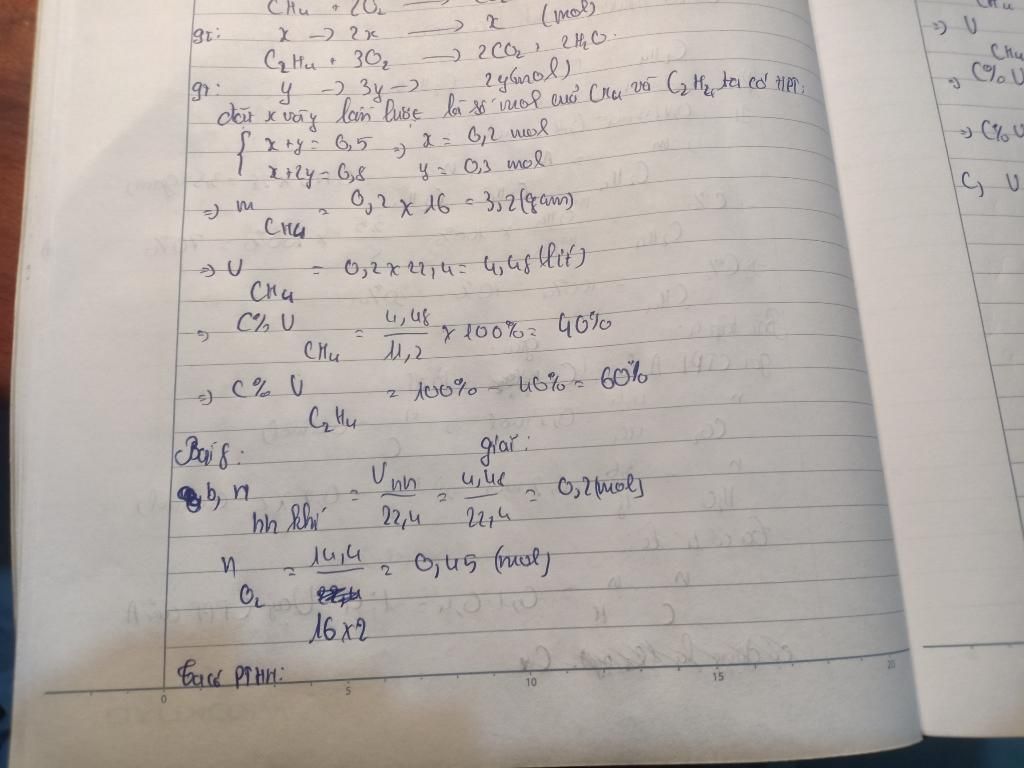 CH4 + 2O2
gt: x → 2x → x (mol)
C2H4 + 3O2 → 2CO2 + 2H2O.
gt: y → 3y → 2y (mol)
đặt x và y lần lượt là số mol của CH4 và C2H4, ta có HPT:
{ x+y = 0,5 => x = 0,2 mol
x+2y = 0,8 y = 0,3 mol
=> m CH4 = 0,2 x 16 = 3,2 (gam)
=> V CH4 = 0,2 x 22,4 = 4,48 (lít)
=> C% V CH4 = 4,48/11,2 x 100% = 40%
=> C% V C2H4 = 100% - 40% = 60%
Bài 8: giải:
b, n hh khí = Vhh/22,4 = 4,48/22,4 = 0,2 (mol)
n O2 = 14,4/16x2 = 0,45 (mol)
ta có PTHH:
0 5 10 15 20
CH4
=> V
CH4
=> C% V
=> C% V
C, V